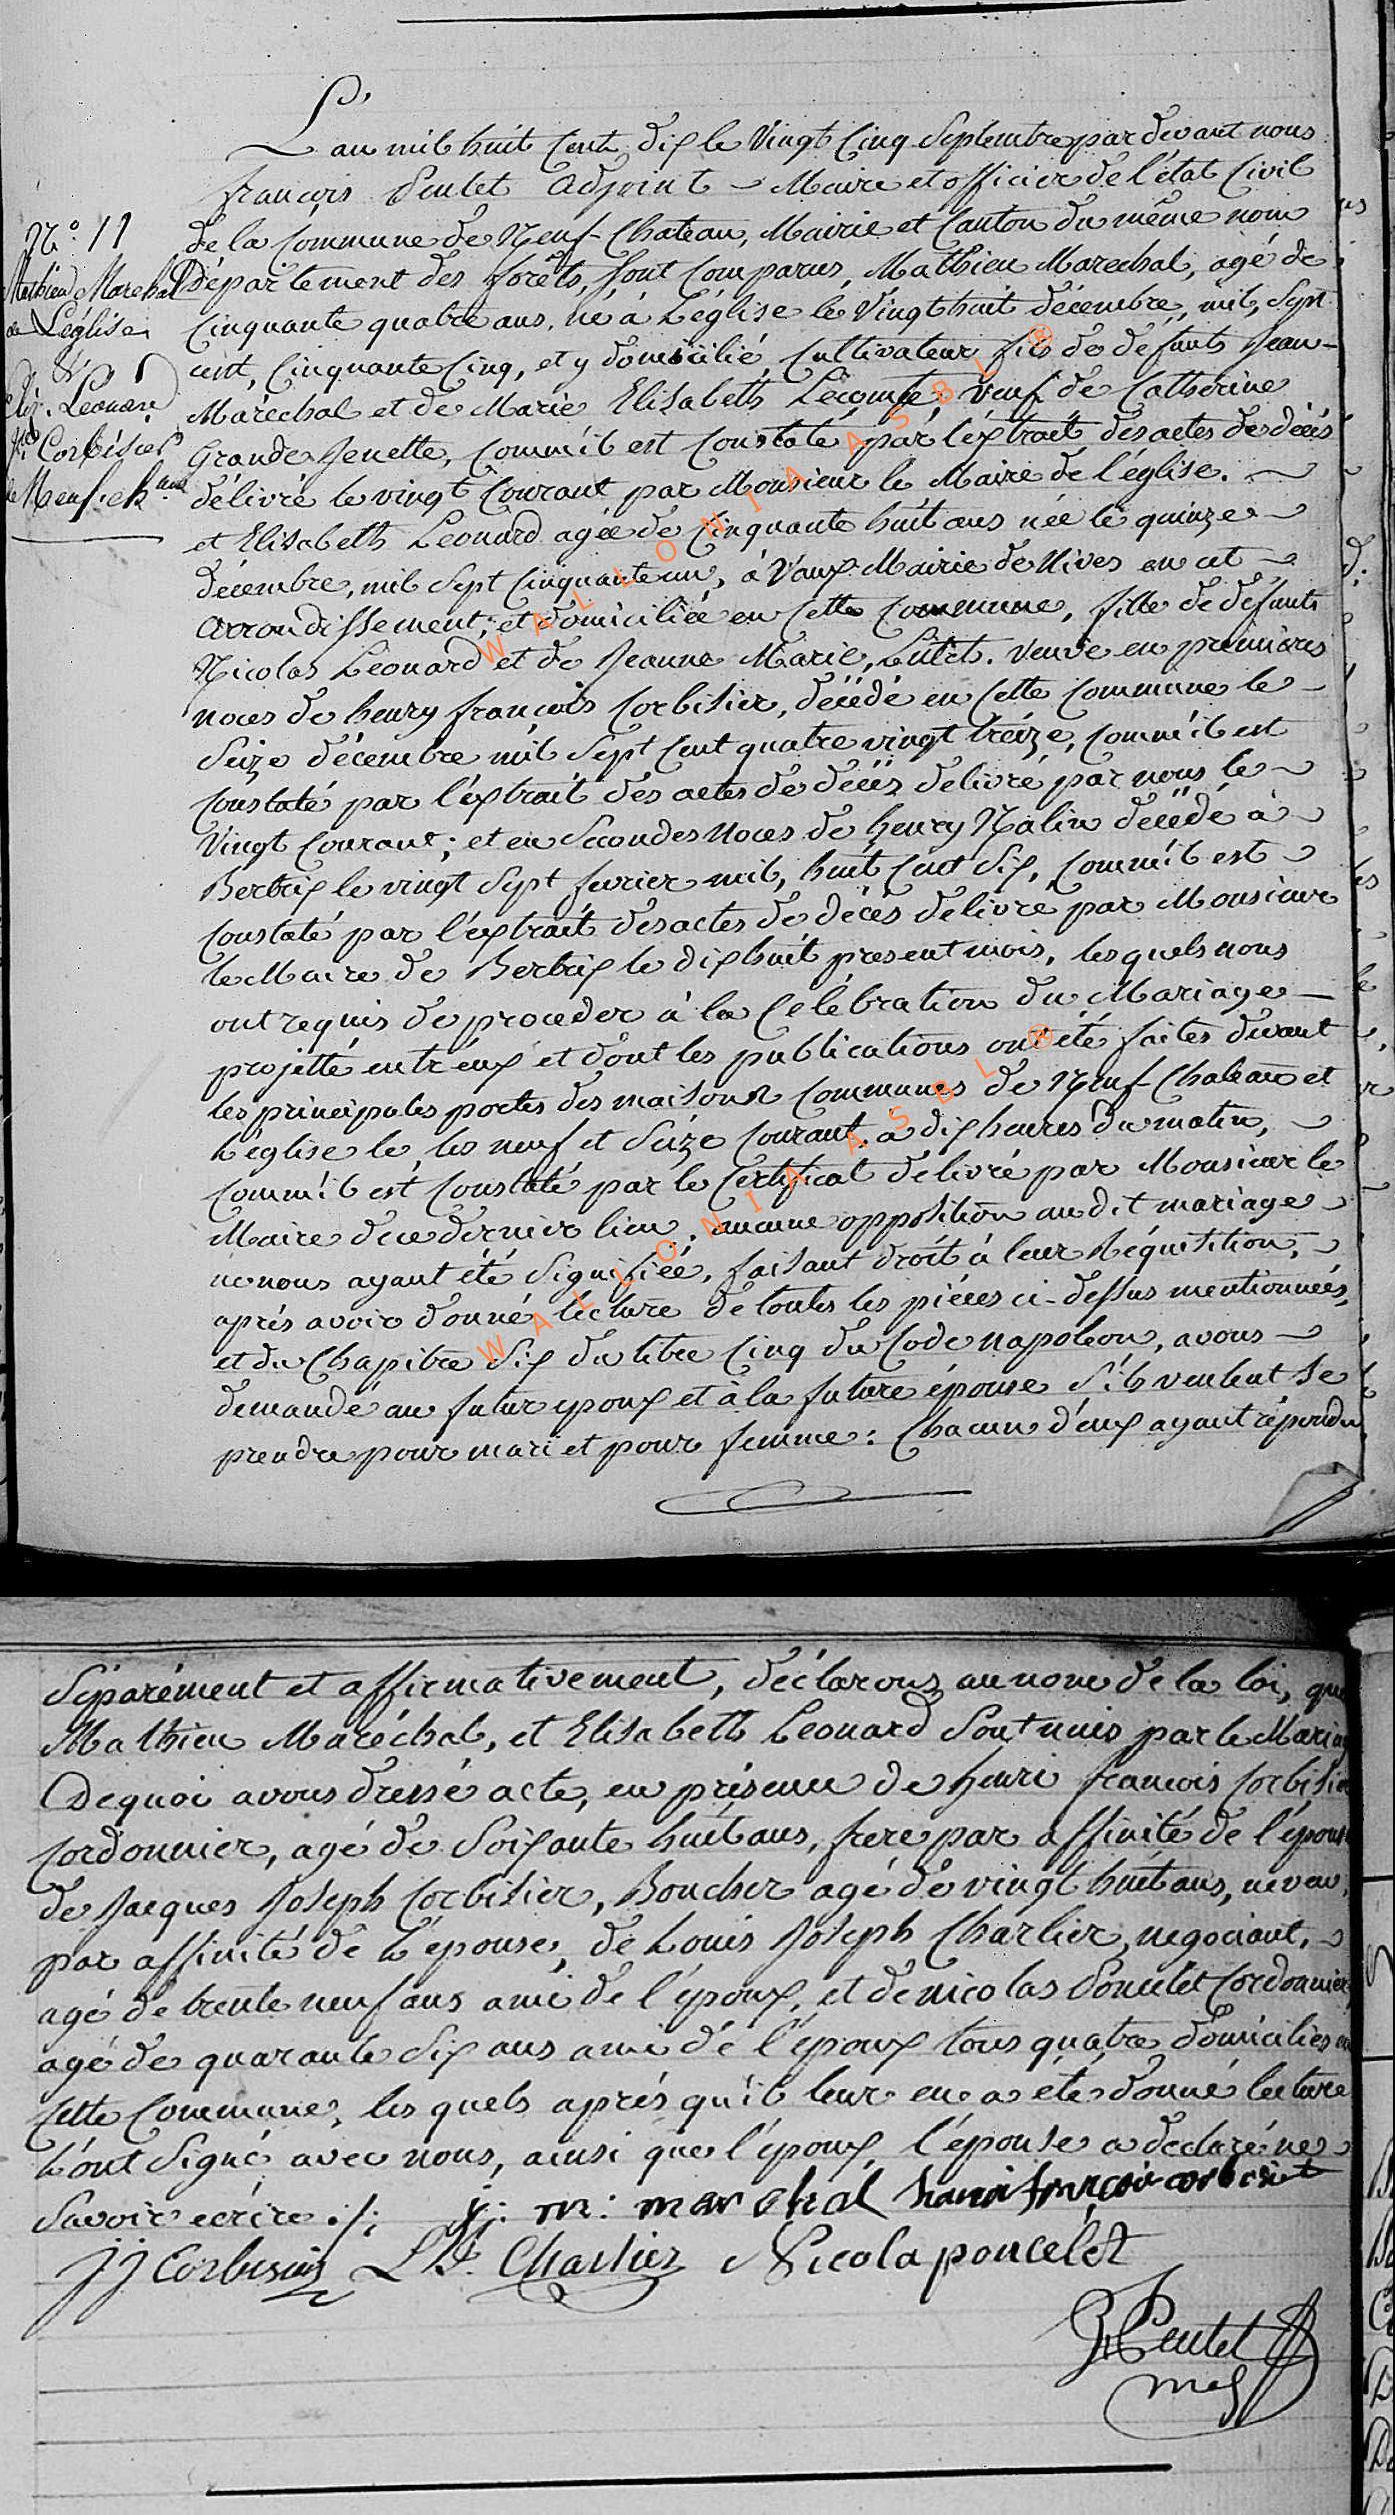 N.° 11
Mathieu Marechal
de Léglise
&
Eliz. Léonard
Corbisier
de Neufch.eau
L'an mil huit Cent dix le Vingt Cinq Septembre par devant nous
françois Pentet Adjoint - Maire et officier de l'état Civil
de la Commune de Neuf-Chateau, Mairie et Canton du même nom
Département des forêts, sont comparus, Mathieu Marechal, agé de
Cinquante quatre ans, né à Léglise le Vingt huit décembre, mil, Sept
cent, Cinquante Cinq, et y domicilié, Cultivateur fils de défunts Jean-
Maréchal et de Marie Elisabeth Lecomte, veuf de Catherine
Grande Jenette, comm'il est constaté par l'extrait des actes de décès
délivré le vingt Courant par Monsieur le Maire de l'église.
et Elisabeth Leonard agée de Cinquante huit ans née le quinze
décembre, mil Sept Cinquante un, à Vaux Mairie de Nives en cet
arrondissement; et domiciliée en Cette Commune, fille de défunts
Nicolas Léonard et de Jeanne Marie, Lutet. Veuve en premières
noces de henry françois Corbisier, décédé en Cette Commune le
Seize décembre mil Sept Cent quatre vingt treize, comm'il est
Constaté par l'extrait des actes de décès délivré par nous le
Vingt Courant; et en Secondes Noces de henry Nalin décédé à
Bertrix le vingt Sept fevrier mil, huit Cent dix, comm'il est
Constaté par l'extrait des actes de décès delivré par Monsieur
le Maire de Bertrix le dix huit present mois, les quels nous
ont requis de proceder à la Celébration du Mariage
projetté entr'eux et dont les publications ont été faites devant
les principales portes des maisons Communes de Neuf-Chateau et
Léglise le les neuf et Seize Courant à dix heures du matin,
Comm'il est Constaté par le Certificat delivré par Monsieur le
Maire de ce dernier lieu, aucune opposition au dit mariage
ne nous ayant été Signifiée, faisant droit à leur Réquisition,
après avoir donné lecture de toutes les pièces ci-dessus mentionnées,
et du Chapitre Six du titre Cinq du Code napoleon, avons
demandé au futur epoux et à la future épouse S'ils veulent Se
prendre pour mari et pour femme: Chacun d'eux ayant répondu
Séparément et affirmativement, déclarons au nom de la loi, que
Mathieu Maréchal, et Elisabeth Leonard Sont unis par le Mariage
De quoi avons dressé acte, en présence de henri francois Corbisier
Cordonnier, agé de Soixante huit ans, frere par affinité de l'épouse
de Jacques Joseph Corbisier, Boucher agé de vingt huit ans, neveu
par affinité de L'épouse, de Louis Joseph Charlier, négociant,
agé de trente neuf ans ami de l'époux, et de nicolas Poncelet Cordonnier
agé de quarante Six ans ami de l'époux tous quatre domiciliés en
Cette Commune, les quels après qu'il leur en a été donné lecture
L'ont Signé avec nous, ainsi que l'époux, l'épouse a declaré ne
Savoir écrire ./.
j: m: marchal hanri françoi corbisier
JJ Corbisier L J. Charlier Nicola poncelet
Pentet
WALLONIA ASBL ®
WALLONIA ASBL ®